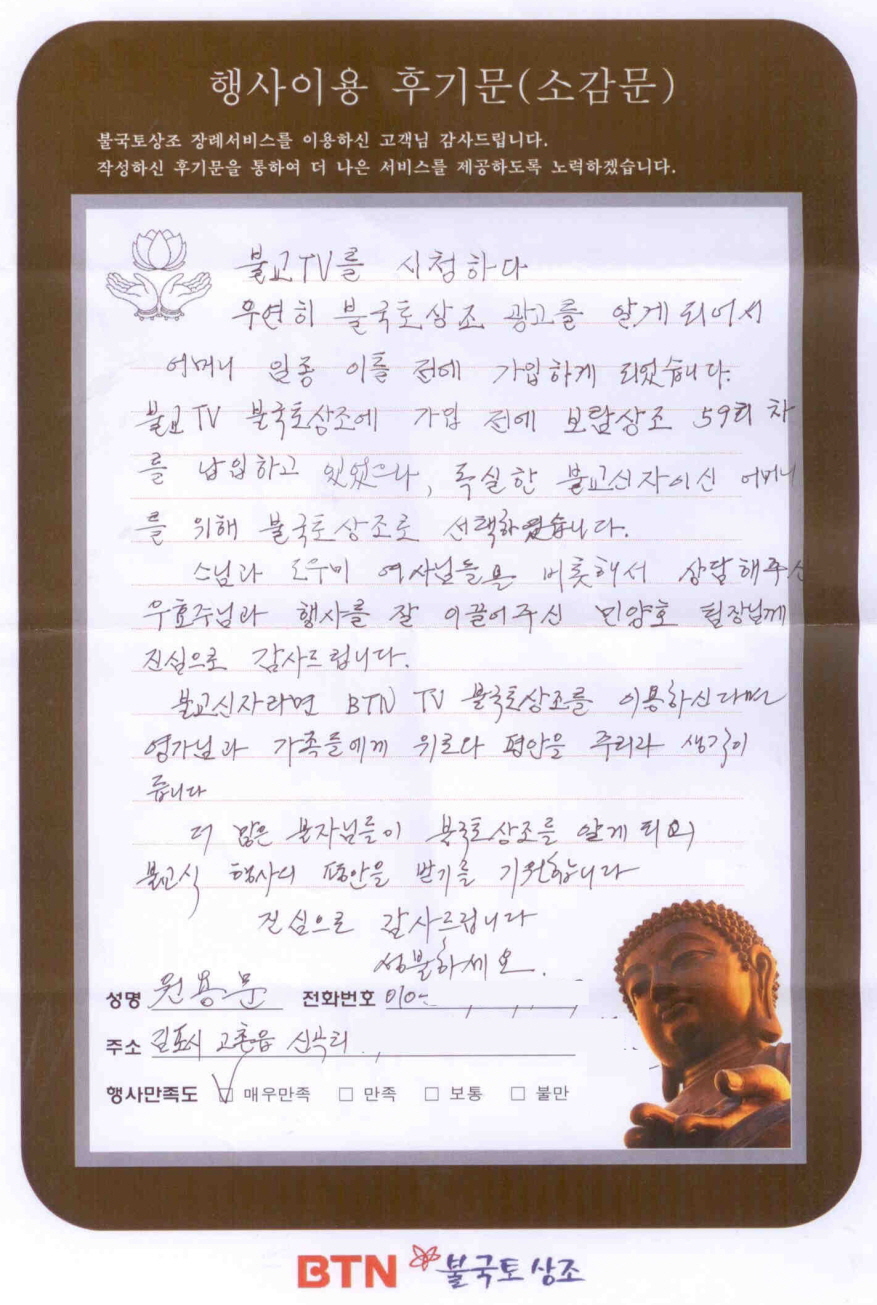 행사이용 후기문(소감문)
불국토상조 장례서비스를 이용하신 고객님 감사드립니다.
작성하신 후기문을 통하여 더 나은 서비스를 제공하도록 노력하겠습니다.
불교TV를 시청하다
우연히 불국토상조 광고를 알게 되어서
어머니 임종 이틀 전에 가입하게 되었습니다.
불교TV 불국토상조에 가입 전에 보람상조 59회 차
를 납입하고 있었으나, 독실한 불교신자이신 어머니
를 위해 불국토상조로 선택하였습니다.
스님과 도우미 여사님들을 비롯해서 상담해주신
우효주님과 행사를 잘 이끌어주신 민양호 팀장님께
진심으로 감사드립니다.
불교신자라면 BTN TV 불국토상조를 이용하신다면
영가님과 가족들에게 위로와 평안을 주리라 생각이
듭니다
더 많은 불자님들이 불국토상조를 알게 되어
불교식 행사의 평안을 받기를 기원합니다
진심으로 감사드립니다
성불하세요.
성명 원용문 전화번호 010-
주소 김포시 고촌읍 신곡리
행사만족도 ☑ 매우만족 □ 만족 □ 보통 □ 불만
BTN 불국토상조